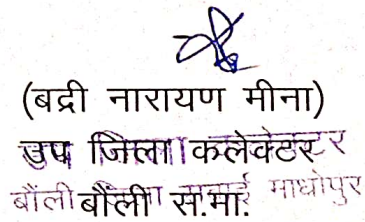 (बद्री नारायण मीना)
उप जिला कलेक्टर
बौंली स.मा.
बौंली माधोपुर